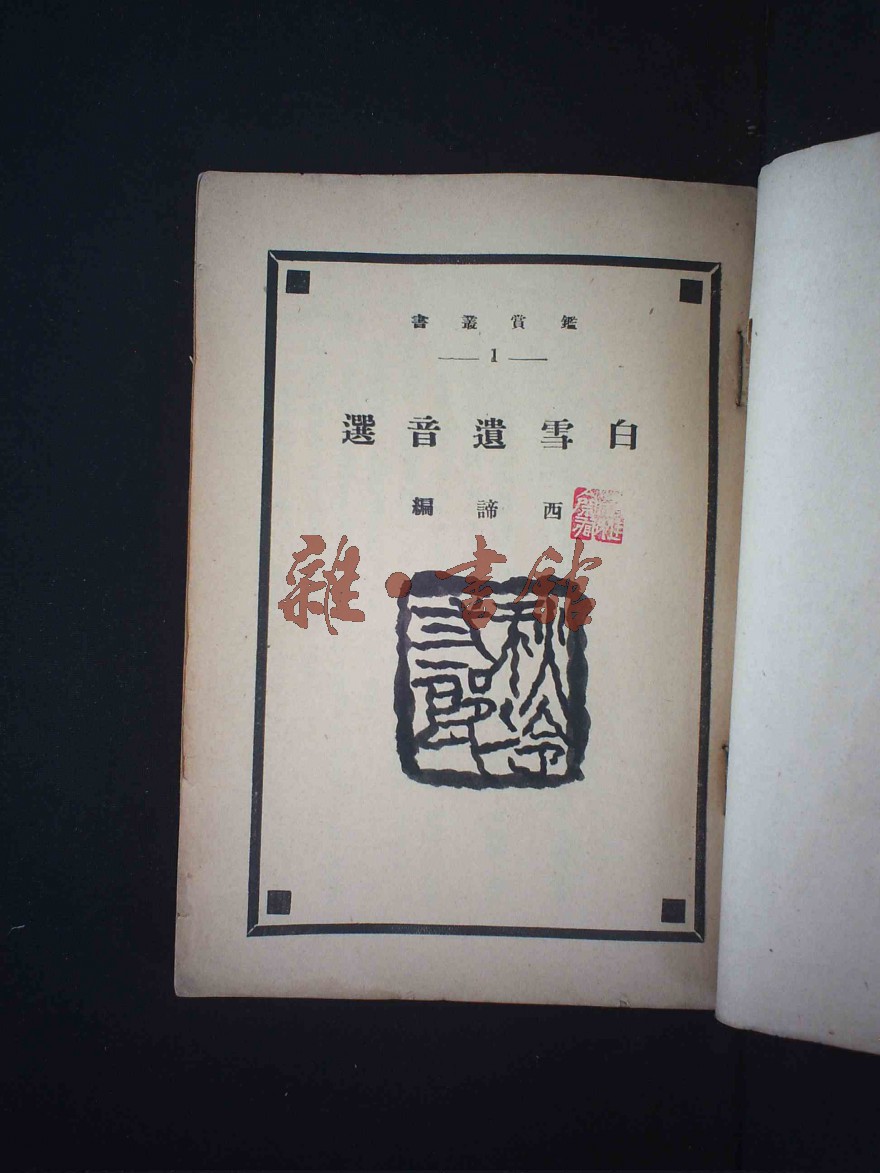 鑑賞叢書
— 1 —
白雪遺音選
西諦編
雜·書館